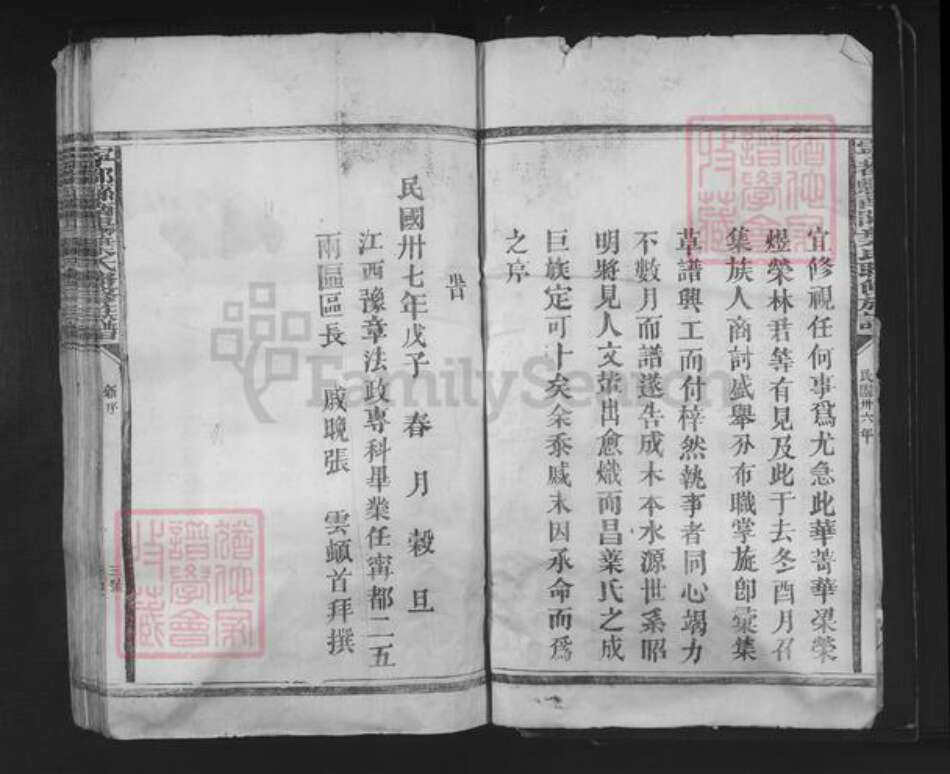 宜修視任何事爲尤急此華菁華梁榮
煜榮林君等有見及此于去冬酉月召
集族人商討盛舉分布職掌旋卽彙集
草譜興工而付梓然執事者同心竭力
不數月而譜遂告成木本水源世系昭
明將見人文蔚出愈熾而昌葉氏之成
巨族定可卜矣余忝戚末因承命而爲
之序
民國卅六年
旹
民國卅七年戊子春月穀旦
江西豫章法政專科畢業任甯都二五
兩區區長 戚晚張雲頓首拜撰
新序
FamilySearch
譜學會
收藏
譜學會
收藏